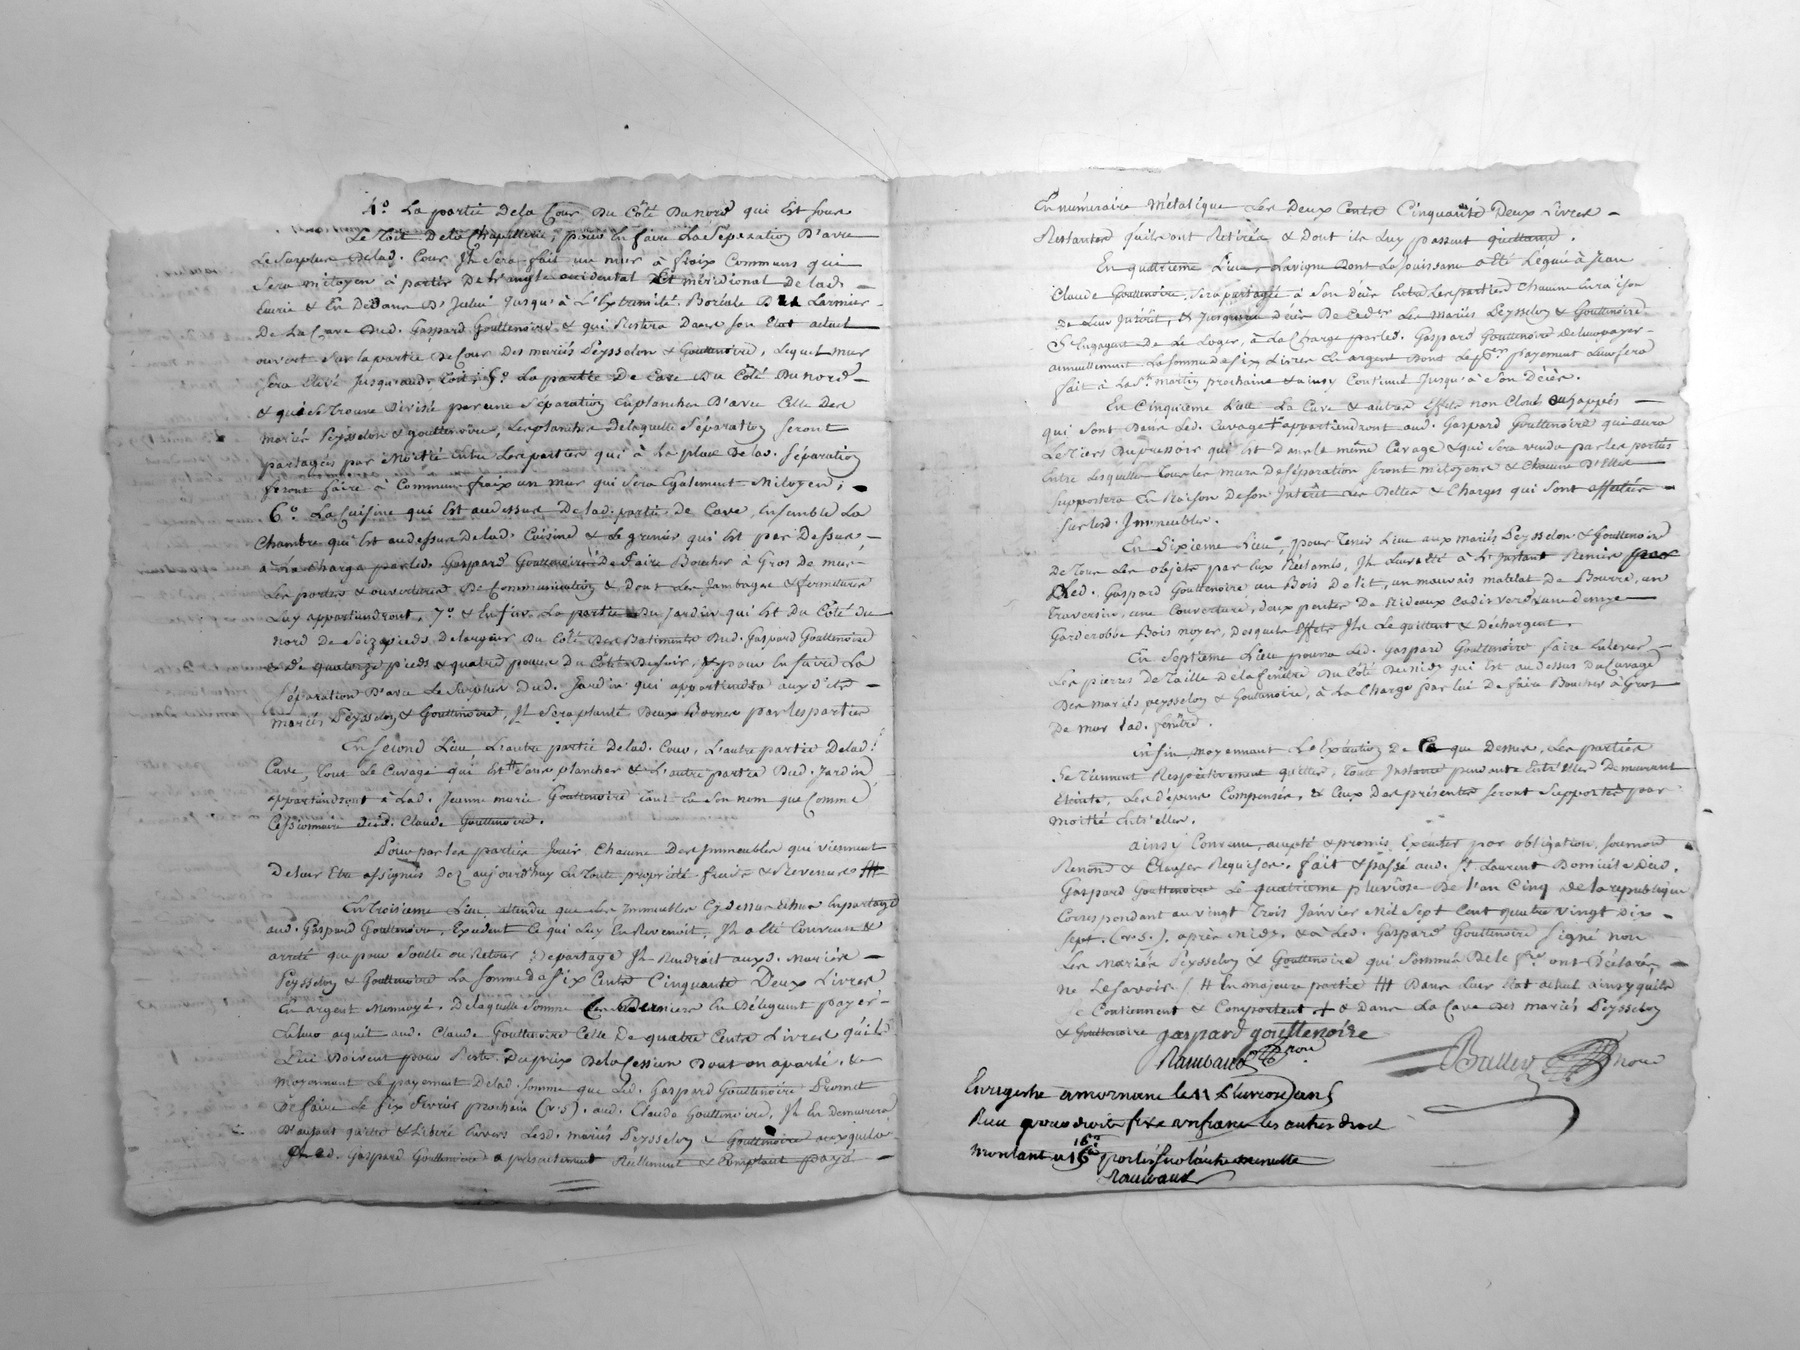 4.° La partie de la Cour du Côté du nord qui Est sous
Le Toit de la Chapellerie, pour En faire La Séparation D'avec
Le Surplus delad. Cour Jl Sera fait un mur à fraix Communs qui
Sera mitoyen à partir de L'angle occidental Et méridional de lad.
Ecurie & En Dedans D'Jcelui Jusqu'à L'Extrémité Boréale Du Larmier
De La Cave Dud. Gaspard Gouttenoire & qui Restera Dans son Etat actuel
ouvert sur la partie de Cour des mariés Peysselon & Gouttenoire, Lequel mur
Sera élevé Jusqu'aud. Toit; 5.° La partie De Cave Du Côté Du nord
& qui se Trouve Divisée par une Séparation En plancher D'avec Celle Des
mariés Peysselon & Gouttenoire, Les planches de laquelle Séparation seront
partagées par Moitié Entre Les parties qui à la place de lad. Séparation
feront faire à Communs fraix un mur qui Sera Egalement Mitoyen;
6.° La Cuisine qui Est au dessus de lad. partie de Cave, Ensemble La
Chambre qui Est au dessus de lad. Cuisine & Le grenier qui Est par Dessus,
à La charge par led. Gaspard Gouttenoire De Faire Boucher à Gros de mur
Les portes & ouvertures De Communication & dont Les Jambages & fermetures
Luy appartiendront, 7.° & Enfin La partie Du Jardin qui Est Du Côté du
nord de Seize pieds de largeur Du Côté Des Batiments Dud. Gaspard Gouttenoire
& de quatorze pieds & quatre pouces Du Côté De soir, & pour En faire La
séparation D'avec Le Surplus Dud. Jardin qui appartiendra auxdits
mariés Peysselon & Gouttenoire, Jl Sera planté Deux Bornes par Les parties
En second Lieu L'autre partie delad. Cour, L'autre partie Delad.
Cave, Tout Le Cuvage qui Est Sous plancher & L'autre partie Dud. Jardin
appartiendront à Lad. Jeanne marie Gouttenoire tant En Son nom que Comme
Cessionnaire dud. Claude Gouttenoire.
Pour par Les parties Jouir Chacune Des Jmmeubles qui viennent
De leur Etre assignés Dez aujourd'huy En Toute propriété fruits & Revenus
En Troisième Lieu, attendu que Les Jmmeubles Cy dessus échus En partage
aud. Gaspard Gouttenoire, Excedent Ce qui Luy En Revenoit, Jl a Eté Convenu &
arrêté que pour Soulte ou Retour De partage Jl Rendroit auxd. Mariés
Peysselon & Gouttenoire La somme de Six Cents Cinquante Deux Livres
En argent Monnoyé. De laquelle Somme Ces Derniers En Déleguent payer
à Leur aquit aud. Claude Gouttenoire Celle De quatre Cents Livres qu'ils
Lui Doivent pour Reste Du prix De la Cession Dont on a parlé, &
moyennant Le payement Delad. somme que Led. Gaspard Gouttenoire Promet
De faire Le six Fevrier prochain (v.s.) aud. Claude Gouttenoire, Jl En demeurera
D'autant quitte & Libéré Envers Lesd. mariés Peysselon & Gouttenoire auxquels
Led. Gaspard Gouttenoire a présentement Réellement & Comptant payé
En numéraire Métalique Les Deux Cents Cinquante Deux Livres
Restantes qu'ils ont Retirées & Dont ils Luy passent quittance.
En quatrieme Lieu, La vigne Dont La Jouissance a Eté Leguée à Jean
Claude Gouttenoire, sera partagée à Son Décès Entre Les parties Chacune En raison
De Leur Jntérêt, & Jusqu'au décès De Ced.er Les Mariés Peysselon & Gouttenoire
S'Engagent De Le Loger, à La Charge par led. Gaspard Gouttenoire de leur payer
annuellement La Somme de six Livres En argent Dont Le p.er payement Leur sera
fait à La S.t martin prochaine & ainsy Continué Jusqu'à Son Décès.
En Cinquieme Lieu La Cuve & autres Effets non Cloués ou happés
qui sont Dans Led. Cuvage appartiendront aud. Gaspard Gouttenoire qui aura
Le Tiers Du pressoir qui Est dans le même Cuvage & qui Sera vendu par Les parties
Entre Lesquelles Tous Les murs De Séparation seront mitoyens & Chacune D'Elles
Supportera En Raison De Son Jntérêt Les Dettes & Charges qui sont affectées
sur Lesd. Jmmeubles.
En Sixieme Lieu, pour Tenir Lieu aux mariés Peysselon & Gouttenoire
De Tous Les objets par Eux Réclamés, Jl Leur a Eté à L'Jnstant Remis par
Led. Gaspard Gouttenoire un Bois de lit, un mauvais matelat de Bourre, un
Traversin, une Couverture, deux pentes De Rideaux Cadis verd & une demye
Garderobbe Bois noyer, Desquels Effets Jls Le quittent & Déchargent.
En Septieme Lieu pourra Led. Gaspard Gouttenoire faire Enlever
Les pierres de Taille de la fenêtre Du Côté De midy qui Est au dessus Du Cuvage
Des mariés peysselon & Gouttenoire, à La Charge par lui De faire Boucher à Gros
De mur Lad. fenêtre.
Enfin, moyennant L'Exécution de Ce que Dessus, Les parties
Se Tiennent Respectivement quittes, Toute Jnstance pendante Entr'Elles Demeurant
Eteinte, Les Dépens Compensés, & Ceux Des présentes seront Supportés par
Moitié Entr'elles.
ainsy Convenu, accepté & promis Exécuter par obligation, soumon
Renon.on & Clauses Requises. fait & passé aud. S.t Laurent Domicile Dud.
Gaspard Gouttenoire Le quatrieme pluviôse De l'an Cinq de la republique
Correspondant au vingt Trois Janvier Mil Sept Cent quatre vingt Dix
sept. (v.s.). après midy, & a Led. Gaspard Gouttenoire signé non
Les Mariés Peysselon & Gouttenoire qui sommés De Le f.re ont Déclaré
ne Le Savoir / # En majeure partie ### Dans Leur Etat actuel ainsy qu'ils
se Contiennent & Comportent + & Dans La Cave des mariés Peysselon
& Gouttenoire gaspard gouttenoire
Raimbaud
Enregistré a mornant le 11 Pluviose an 5
Reçu pour droits fixe un franc les autres droit
montant a portés sur l'autre minutte
Raimbaud